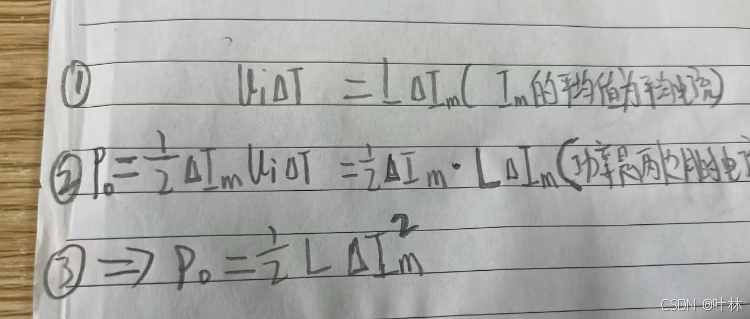 ① UiΔT = LΔIm( Im的平均值为平均电流)
② Po = 1/2 ΔIm UiΔT = 1/2 ΔIm · LΔIm(功率是两
③ => Po = 1/2 L ΔIm²
CSDN @叶林